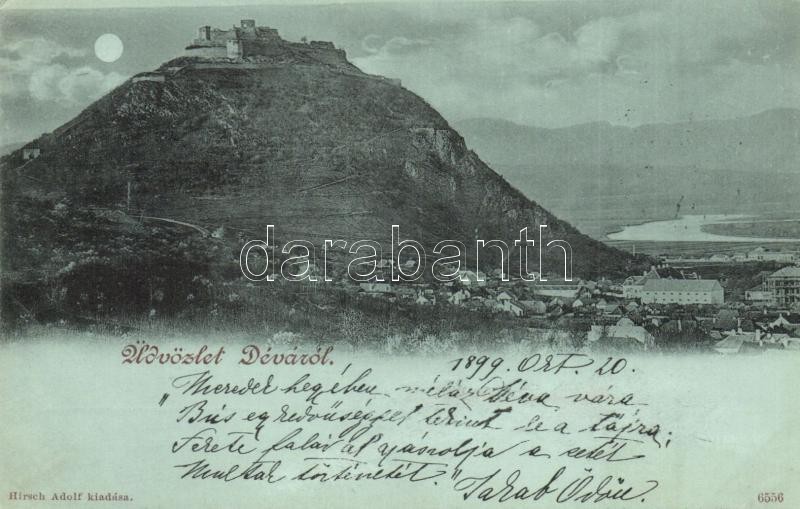 darabanth
Üdvözlet Déváról.
1899. Okt. 20.
"Meredek hegében méláz Déva vára
Bús egykedvűséggel tekint le a tájra;
Fekete falával gyászolja a setét
Multak történetét."
Jakab Ödön.
Hirsch Adolf kiadása.
6556